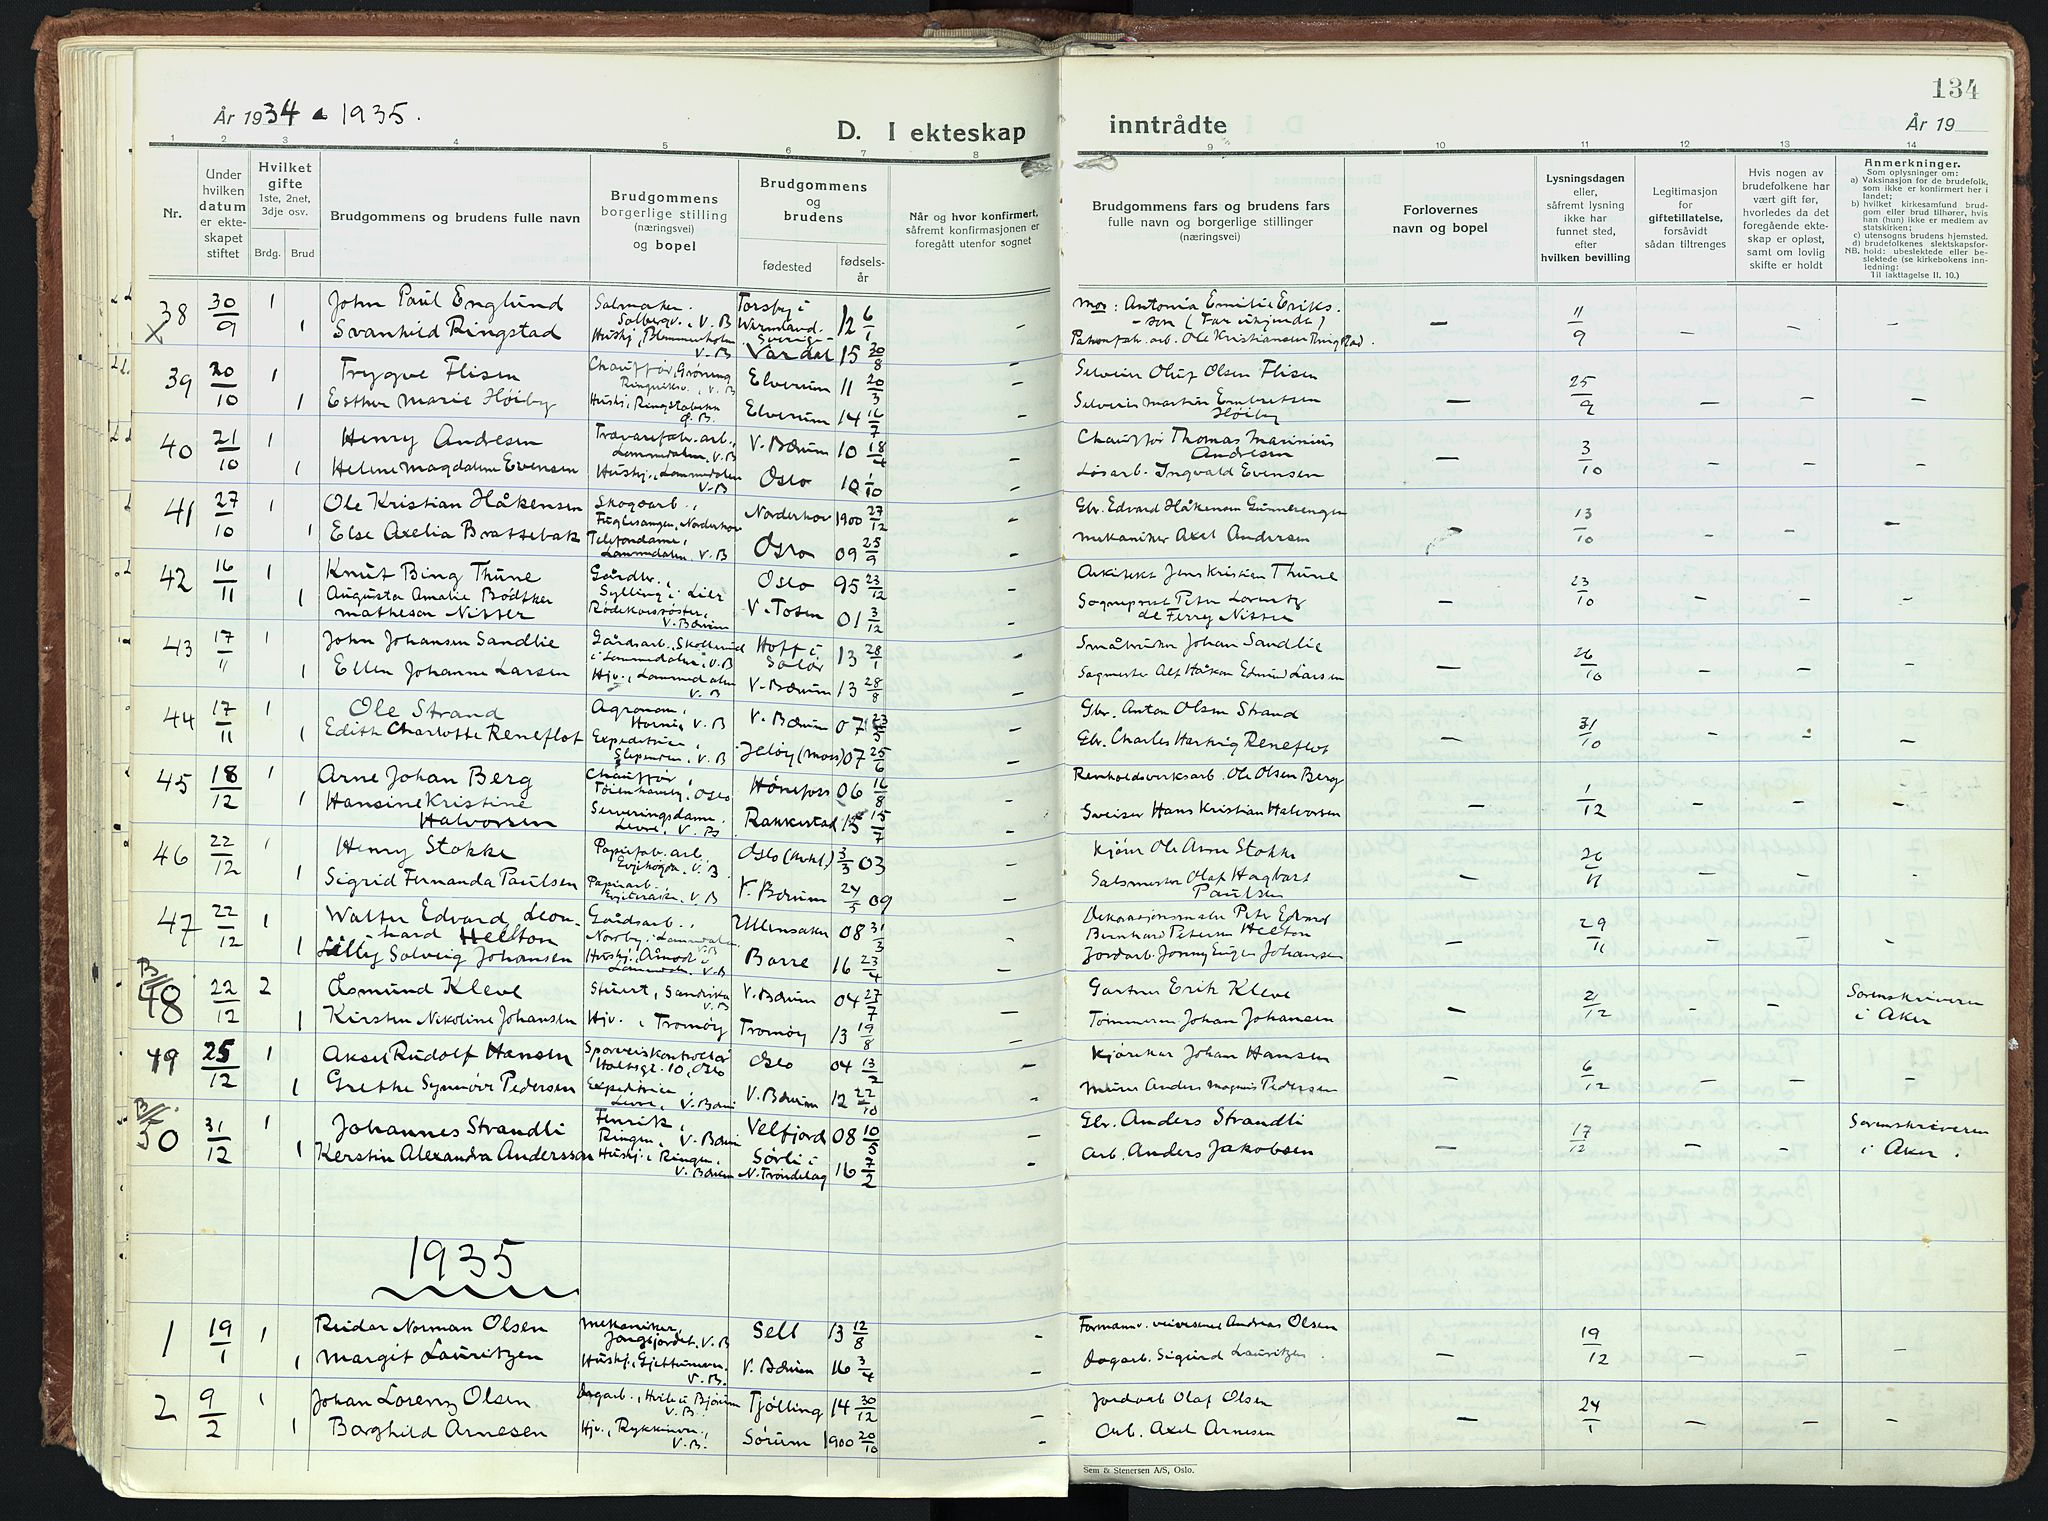 134
År 1934 - 1935.
D. I ekteskap
inntrådte
År 19
1 2 3 4 5 6 7 8 9 10 11 12 13 14
Nr.
Under hvilken datum er ekteskapet stiftet
Hvilket gifte 1ste, 2net, 3dje osv.
Brdg. Brud
Brudgommens og brudens fulle navn
Brudgommens borgerlige stilling (næringsvei) og bopel
Brudgommens og brudens
fødested
fødselsår
Når og hvor konfirmert, såfremt konfirmasjonen er foregått utenfor sognet
Brudgommens fars og brudens fars fulle navn og borgerlige stillinger (næringsvei)
Forlovernes navn og bopel
Lysningsdagen eller, såfremt lysning ikke har funnet sted, efter hvilken bevilling
Legitimasjon for giftetillatelse, forsåvidt sådan tiltrenges
Hvis nogen av brudefolkene har vært gift før, hvorledes da det foregående ekteskap er opløst, samt om lovlig skifte er holdt
Anmerkninger.
Som oplysninger om:
a) Vaksinasjon for de brudefolk, som ikke er konfirmert her i landet;
b) hvilket kirkesamfund brudgom eller brud tilhører, hvis han (hun) ikke er medlem av statskirken;
c) utensogns brudens hjemsted.
d) brudefolkenes slektskapsforhold: ubeslektede eller beslektede (se kirkebokens innledning:
NB.
Til iakttagelse II. 10.)
38 30/9 1 John Paul Englund Salmaker Solbergv., V.B Torsby i Wermland. Sverige 12 6/1 mor: Antonia Emilie Eriksson (Far ukjendt) — 11/9 — — —
X 1 Svanhild Ringstad Hushj., Blommenholm V.B Vardal 15 30/8 arb. Ole Kristiansen Ringstad.
39 20/10 1 Trygve Flisen Chauffør, Grønng Ringeriksv., V.B Elverum 11 20/3 Selveier Oluf Olsen Flisen 25/9
1 Esther Marie Høiby Hushj., Ringstabekk Ø.B. Elverum 14 16/7 Selveier Martin Embretsen Høiby — — — —
40 21/10 1 Henry Andresen Trævarefabr. arb., Lommedalen, V.B V. Bærum 10 18/4 Chauffør Thomas Marinius Andresen 3/10
1 Helene Magdalene Evensen Hushj., Lommedalen V.B Oslo 10 1/10 Løsarb. Ingvald Evensen — — — —
41 27/10 1 Ole Kristian Håkensen Skogarb., Fuglesangen, Norderhov Norderhov 1900 27/12 Gbr. Edvard Håkensen Gunnerengen 13/10
1 Else Axelia Brattebak Telefondame, Lommedalen, V.B Oslo 09 25/9 Mekaniker Axel Andersen — — —
42 16/11 1 Knut Bing Thune Gårdbr., Sylling i Lier Oslo 95 23/12 Arkitekt Jens Kristian Thune 23/10
1 Augusta Amalie Bødtker Matheson Nisser Rødekorssøster, V. Bærum V. Toten 01 3/12 Sogneprest Peter Lorentz de Ferry Nisser — — — —
43 17/11 1 John Johansen Sandlie Gårdsarb., Skollerud i Lommedalen, V.B Hoff i Solør 13 28/1 Småbruker Johan Sandlie 26/10
1 Ellen Johanne Larsen Hjv., Lommedalen V.B V. Bærum 13 28/8 Sagmester Alf Håkon Edmund Larsen — — — —
44 17/11 1 Ole Strand Agronom, Hornis, V.B V. Bærum 07 23/5 Gbr. Anton Olsen Strand 31/10
1 Edith Charlotte Reneflot Expeditrice, Slependen, V.B Jeløy (Moss) 07 25/6 Gbr. Charles Hartvig Reneflot — — — —
45 18/12 1 Arne Johan Berg Chauffør, Tøienhavebg, Oslo Hønefoss 06 16/8 Renholdsverksarb. Ole Olsen Berg 1/12
1 Hansine Kristine Halvorsen Serveringsdame. Levre, V. Bs Rakkestad 15 15/7 Sveiser Hans Kristian Halvorsen — — — —
46 22/12 1 Henry Stokke Papirfab. arb., V.B Oslo 3/3 03 Kjører Ole Arne Stokke 26/11
1 Sigrid Fernanda Paulsen Papirarb. V.B V. Bærum 24/5 09 Salsmester Olaf Hagbart Paulsen — — —
47 22/12 1 Walter Edvard Leonhard Heelton Gårdsarb., Norby i Lommedalen, V.B Ullensaker 08 31/3 Dekorasjonsmaler Peter Edvard Bernhard Petersen Heelton 29/11
1 Lilly Solveig Johansen Hushj. Åmodt i Lommedalen, V.B Borre 16 23/4 Jordarb. Jonny Eugen Johansen — — —
B 48 22/12 2 Åsmund Kleve Stuert, Sandvika V.B V. Bærum 04 27/7 Gartner Erik Kleve 2/12 Sorenskriveren i Aker
1 Kirsten Nikoline Johansen Hjv., Tromøy Tromøy 13 19/8 Tømmerm. Johan Johansen — — —
49 25/12 1 Aksel Rudolf Hansen Sporveiskontrollør Holtsgt. 10, Oslo Oslo 04 13/2 Kjørekar Johan Hansen 6/12
1 Grethe Synnøve Pedersen Expeditrice, Levre, V. Bærum V. Bærum 12 22/10 Murer Anders Magnus Pedersen — — — —
B 50 31/12 1 Johannes Strandli Fenrik, Ringen, V. Bærum Velfjord 08 10/5 Gbr. Anders Strandli 17/12 Sorenskriveren i Aker.
1 Kerstin Alexandra Andersson Hushj., Ringen, V. Bærum Sørli i N. Trøndelag 16 7/2 Arb. Anders Jakobsen — — —
1935
1 19/1 1 Reidar Norman Olsen Mekaniker, Jongsjordet, V.B Sell 13 12/8 Formann v. veivesenet Andreas Olsen 19/12
1 Margit Lauritzen Hushj., Gjettumvn. V.B. V. Bærum 16 3/4 Dagarb. Sigurd Lauritzen. — — — —
2 9/2 1 Johan Lorenz Olsen Dagarb., Hvile i Bjørum V.B. Tjølling 14 30/12 Jordarb Olaf Olsen 24/1
1 Borghild Arnesen Hjv., Rykkinnvn., V.B. Sørum 1900 20/10 Arb. Axel Arnesen — — — —
Sem & Stenersen A/S, Oslo.